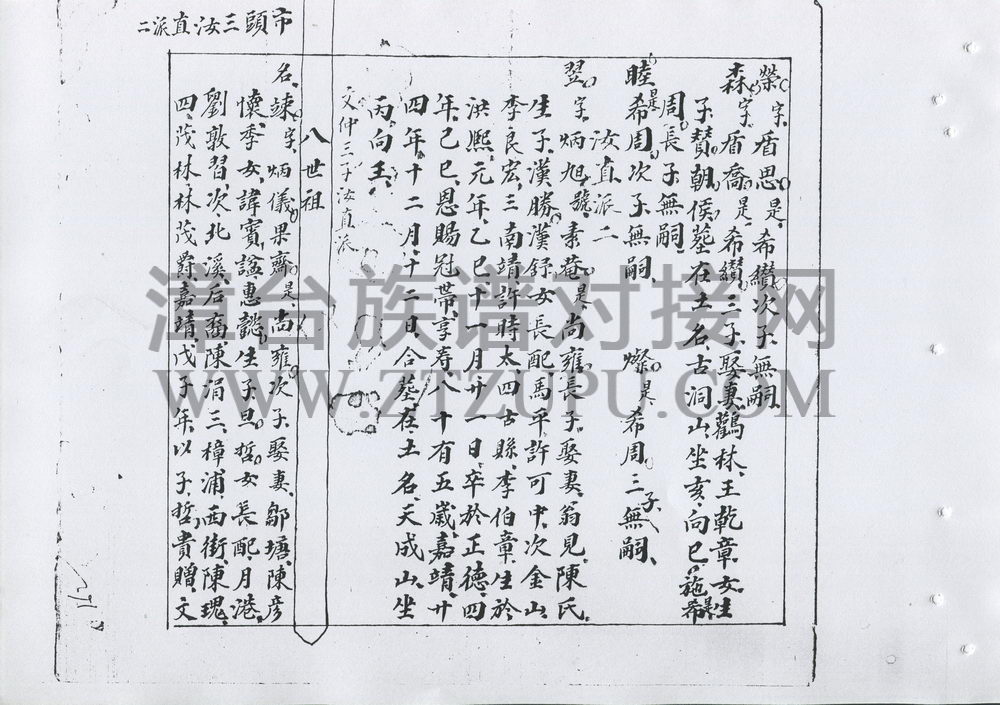 市頭三汝直派二
榮字盾思是希纘次子無嗣
森字盾喬是希纘三子娶妻鸛林王乾章女生
子贊朝侯墓在土名古洞山坐亥向巳施是希
周長子無嗣
睦是希周次子無嗣 燦是希周三子無嗣
汝直派二
翌字炳旭號素菴是尚雍長子娶妻翁見陳氏
生子漢勝漢錚女長配馬平許可中次金山
李良宏三南靖許時太四古縣李伯章生於
洪熙元年乙巳十一月廿一日卒於正德四
年己巳恩賜冠帶享寿八十有五歲嘉靖廿
四年十二月十二日合墓在土名天成山坐
丙向壬
文仲三子汝直派
八世祖
名竦字炳儀果齋是尚雍次子娶妻鄒塘陳彦
懷季女諱賓諡惠懿生子旦哲女長配月港
劉敦習次北溪后裔陳涓三樟浦西街陳瑰
四茂林林茂爵嘉靖戊子年以子哲貴贈文
漳台族谱对接网
WWW.ZTZUPU.COM